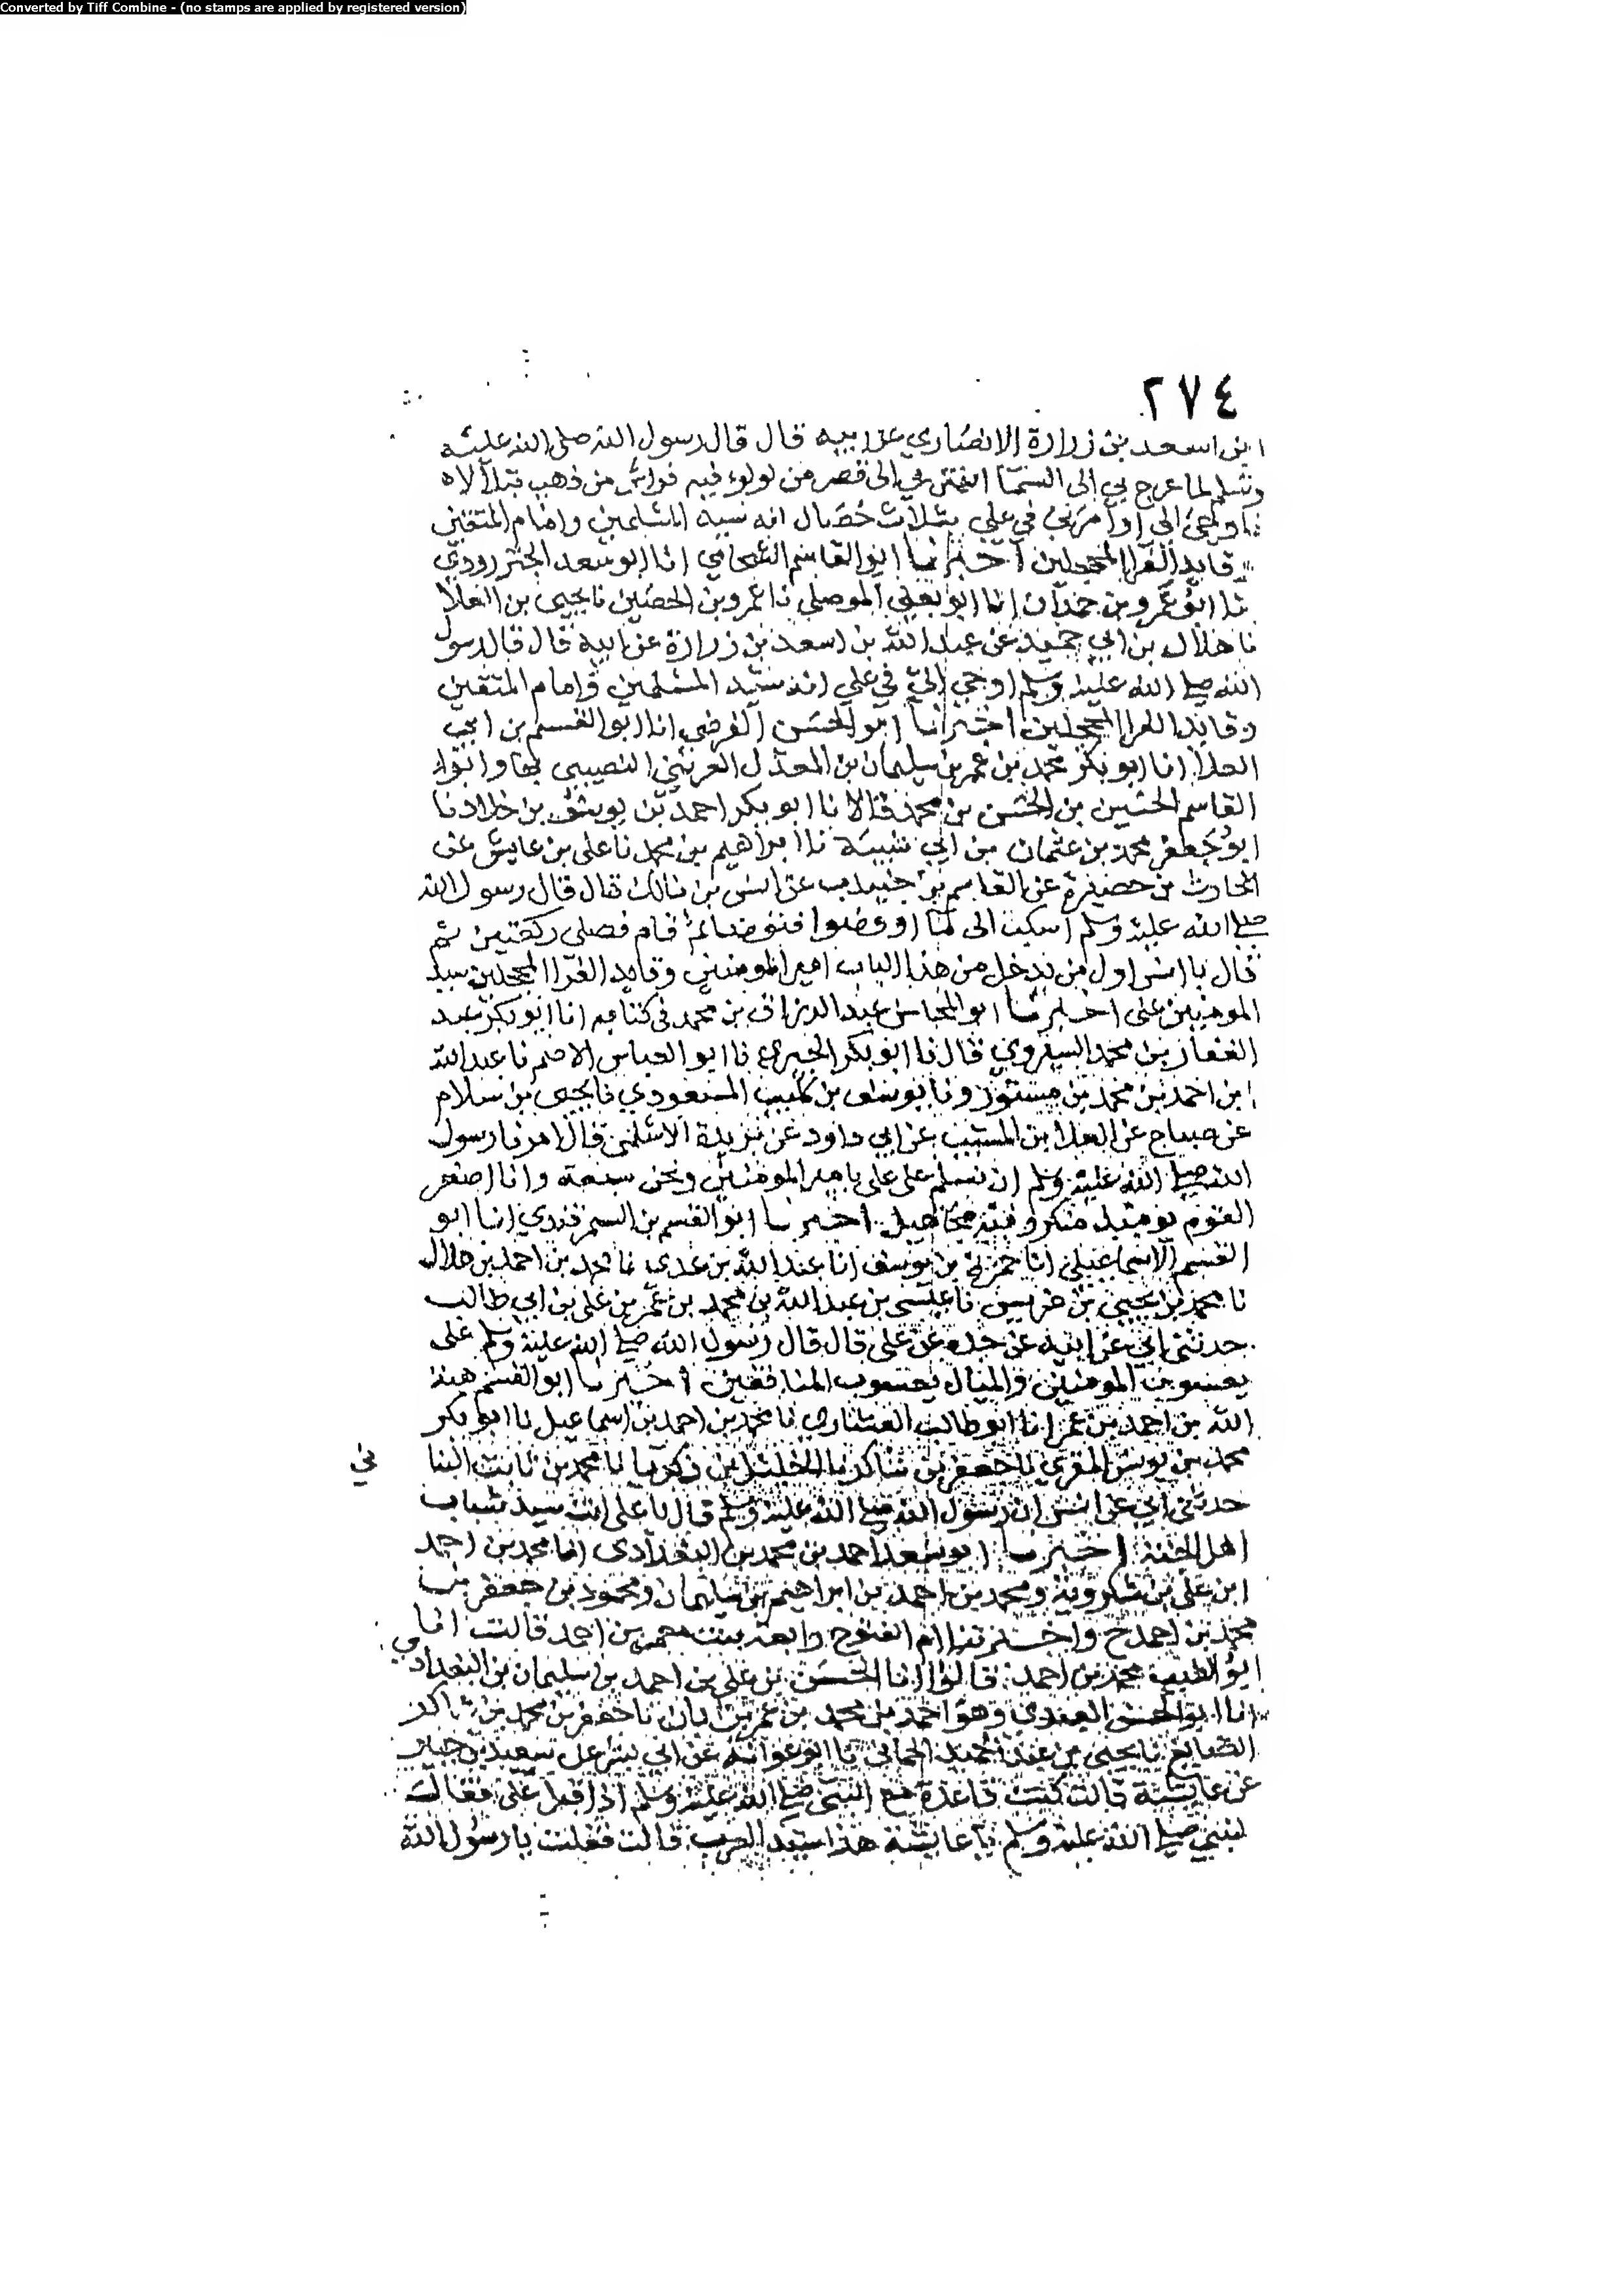 Converted by Tiff Combine - (no stamps are applied by registered version)
٢٧٤
ابن اسعد بن زرارة الانصاري عن ابيه قال قال رسول الله صلى الله عليه
وسلم لما عرج بي الى السما انتهى بي الى قصر من لولو فيه فراش من ذهب يتلالا
فاوحى الى او امرني في علي بثلاث خصال انه سيد المسلمين وامام المتقين
وقايد الغر المحجلين اخبرنا ابو القاسم الشحامي انا ابو سعد الجنزرودي
نا ابو عمرو بن حمدان انا ابو يعلى الموصلي نا عمرو بن الحصين نا يحيى بن العلا
نا هلال بن ابي حميد عن عبد الله بن اسعد بن زرارة عن ابيه قال قال رسول
الله صلى الله عليه وسلم اوحي الي في علي انه سيد المسلمين وامام المتقين
وقايد الغر المحجلين اخبرنا ابو الحسن الفرضي انا ابو القسم بن ابي
العلا انا ابو بكر محمد بن عمر بن سليمان بن المعدل العريني النصيبي بها وابو
القاسم الحسين بن الحسن بن محمد قالا نا ابو بكر احمد بن يوسف بن خلاد نا
ابو جعفر محمد بن عثمان بن ابي شيبة نا ابراهيم بن محمد نا علي بن عايش عن
الحارث بن حصيرة عن القاسم بن جندب عن انس بن مالك قال قال رسول الله
صلى الله عليه وسلم اسكب الى ما او وضوا فتوضا ثم قام فصلى ركعتين ثم
قال يا انس اول من يدخل من هذا الباب امير المومنين وقايد الغر المحجلين سيد
المومنين علي اخبرنا ابو المحاسن عبد الرزاق بن محمد في كتابه انا ابو بكر عبد
الغفار بن محمد الشيروي قال نا ابو بكر الحيري نا ابو العباس الاصم نا عبد الله
ابن احمد بن محمد بن مستورد نا يوسف بن كليب المسعودي نا يحيى بن سلام
عن صباح عن العلا بن المسيب عن ابي داود عن بريدة الاسلمي قال امرنا رسول
الله صلى الله عليه وسلم ان نسلم على علي بامير المومنين ونحن سبعة وانا اصغر
القوم يوميذ منكر وفيه مجاهيل اخبرنا ابو القسم بن السمرقندي انا ابو
القسم الاسماعيلي انا حمزة بن يوسف انا عبد الله بن عدي نا محمد بن احمد بن هلال
نا محمد بن يحيى بن ضريس نا عيسى بن عبد الله بن محمد بن عمر بن علي بن ابي طالب
حدثني ابي عن ابيه عن جده عن علي قال قال رسول الله صلى الله عليه وسلم علي
يعسوب المومنين والمال يعسوب المنافقين اخبرنا ابو القسم هبة
الله بن احمد بن عمر انا ابو طالب العشاري نا محمد بن احمد بن اسماعيل نا ابو بكر
محمد بن يونس المقري نا جعفر بن شاكر نا الخليل بن زكريا نا محمد بن ثابت البنا
ني
حدثني ابي عن انس ان رسول الله صلى الله عليه وسلم قال يا علي انت سيد شباب
اهل الجنة اخبرنا ابو سعد احمد بن محمد بن البغدادي انا محمد بن احمد
ابن علي بن شكرويه ومحمد بن احمد بن ابراهيم بن سليمان ومحمود بن جعفر بن
محمد بن احمد ح واخبرتنا ام الفتوح رابعة بنت معمر بن احمد قالت انا
ابو الطيب محمد بن احمد قالوا انا الحسن بن علي بن احمد بن سليمان بن البغدادي
انا ابو الحسن العبدي وهو احمد بن محمد بن عمر بن ابان نا جعفر بن محمد بن شاكر
الصايغ نا يحيى بن عبد الحميد الحماني نا ابو عوانة عن ابي بشر عن سعيد بن جبير
عن عايشة قالت كنت قاعدة مع النبي صلى الله عليه وسلم اذ اقبل علي فقال
لنبي صلى الله عليه وسلم يا عايشة هذا سيد العرب قالت فقلت يا رسول الله